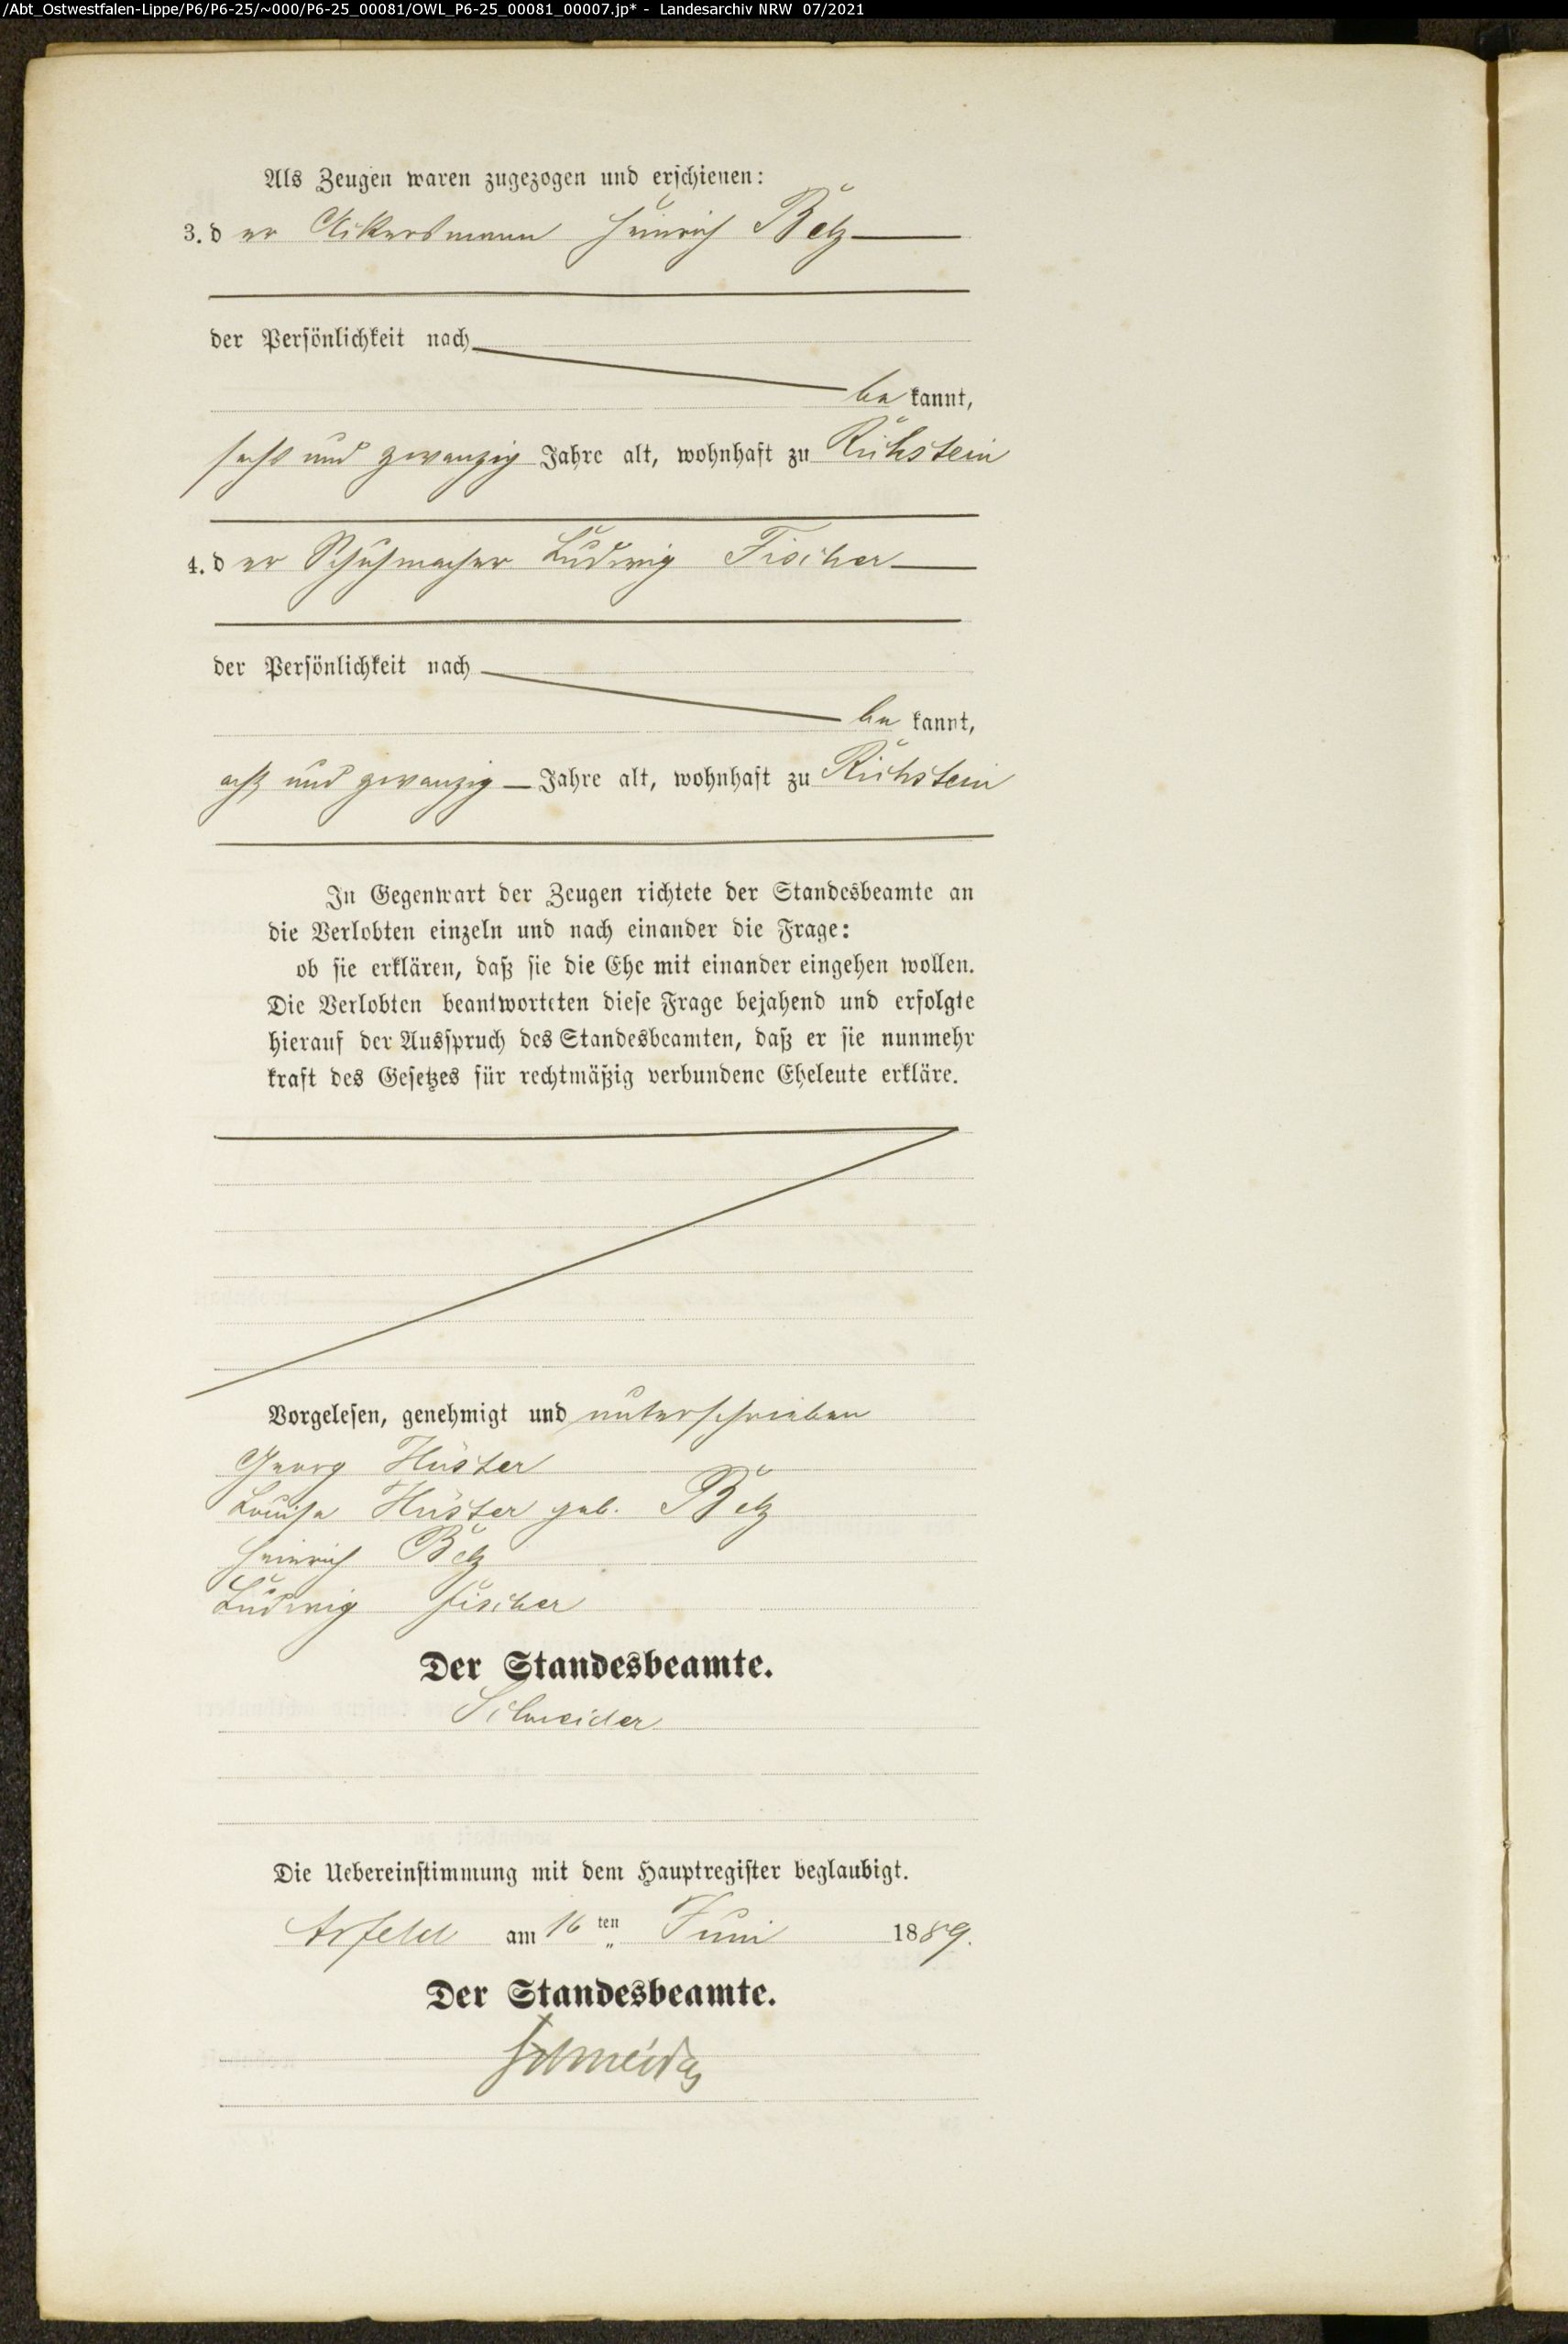 /Abt_Ostwestfalen-Lippe/P6/P6-25/~000/P6-25_00081/OWL_P6-25_00081_00007.jp* - Landesarchiv NRW 07/2021
Als Zeugen waren zugezogen und erschienen:
3. der Ackersmann Heinrich Betz
der Persönlichkeit nach
bekannt,
sechs und zwanzig Jahre alt, wohnhaft zu Richstein
4. der Schuhmacher Ludwig Fischer
der Persönlichkeit nach
bekannt,
acht und zwanzig Jahre alt, wohnhaft zu Richstein
In Gegenwart der Zeugen richtete der Standesbeamte an
die Verlobten einzeln und nach einander die Frage:
ob sie erklären, daß sie die Ehe mit einander eingehen wollen.
Die Verlobten beantworteten diese Frage bejahend und erfolgte
hierauf der Ausspruch des Standesbeamten, daß er sie nunmehr
kraft des Gesetzes für rechtmäßig verbundene Eheleute erkläre.
Vorgelesen, genehmigt und unterschrieben
Georg Hüster
Louise Hüster geb. Betz
Heinrich Betz
Ludwig Fischer
Der Standesbeamte.
Schneider
Die Uebereinstimmung mit dem Hauptregister beglaubigt.
Arfeld am 16ten Juni 1889.
Der Standesbeamte.
Schneider